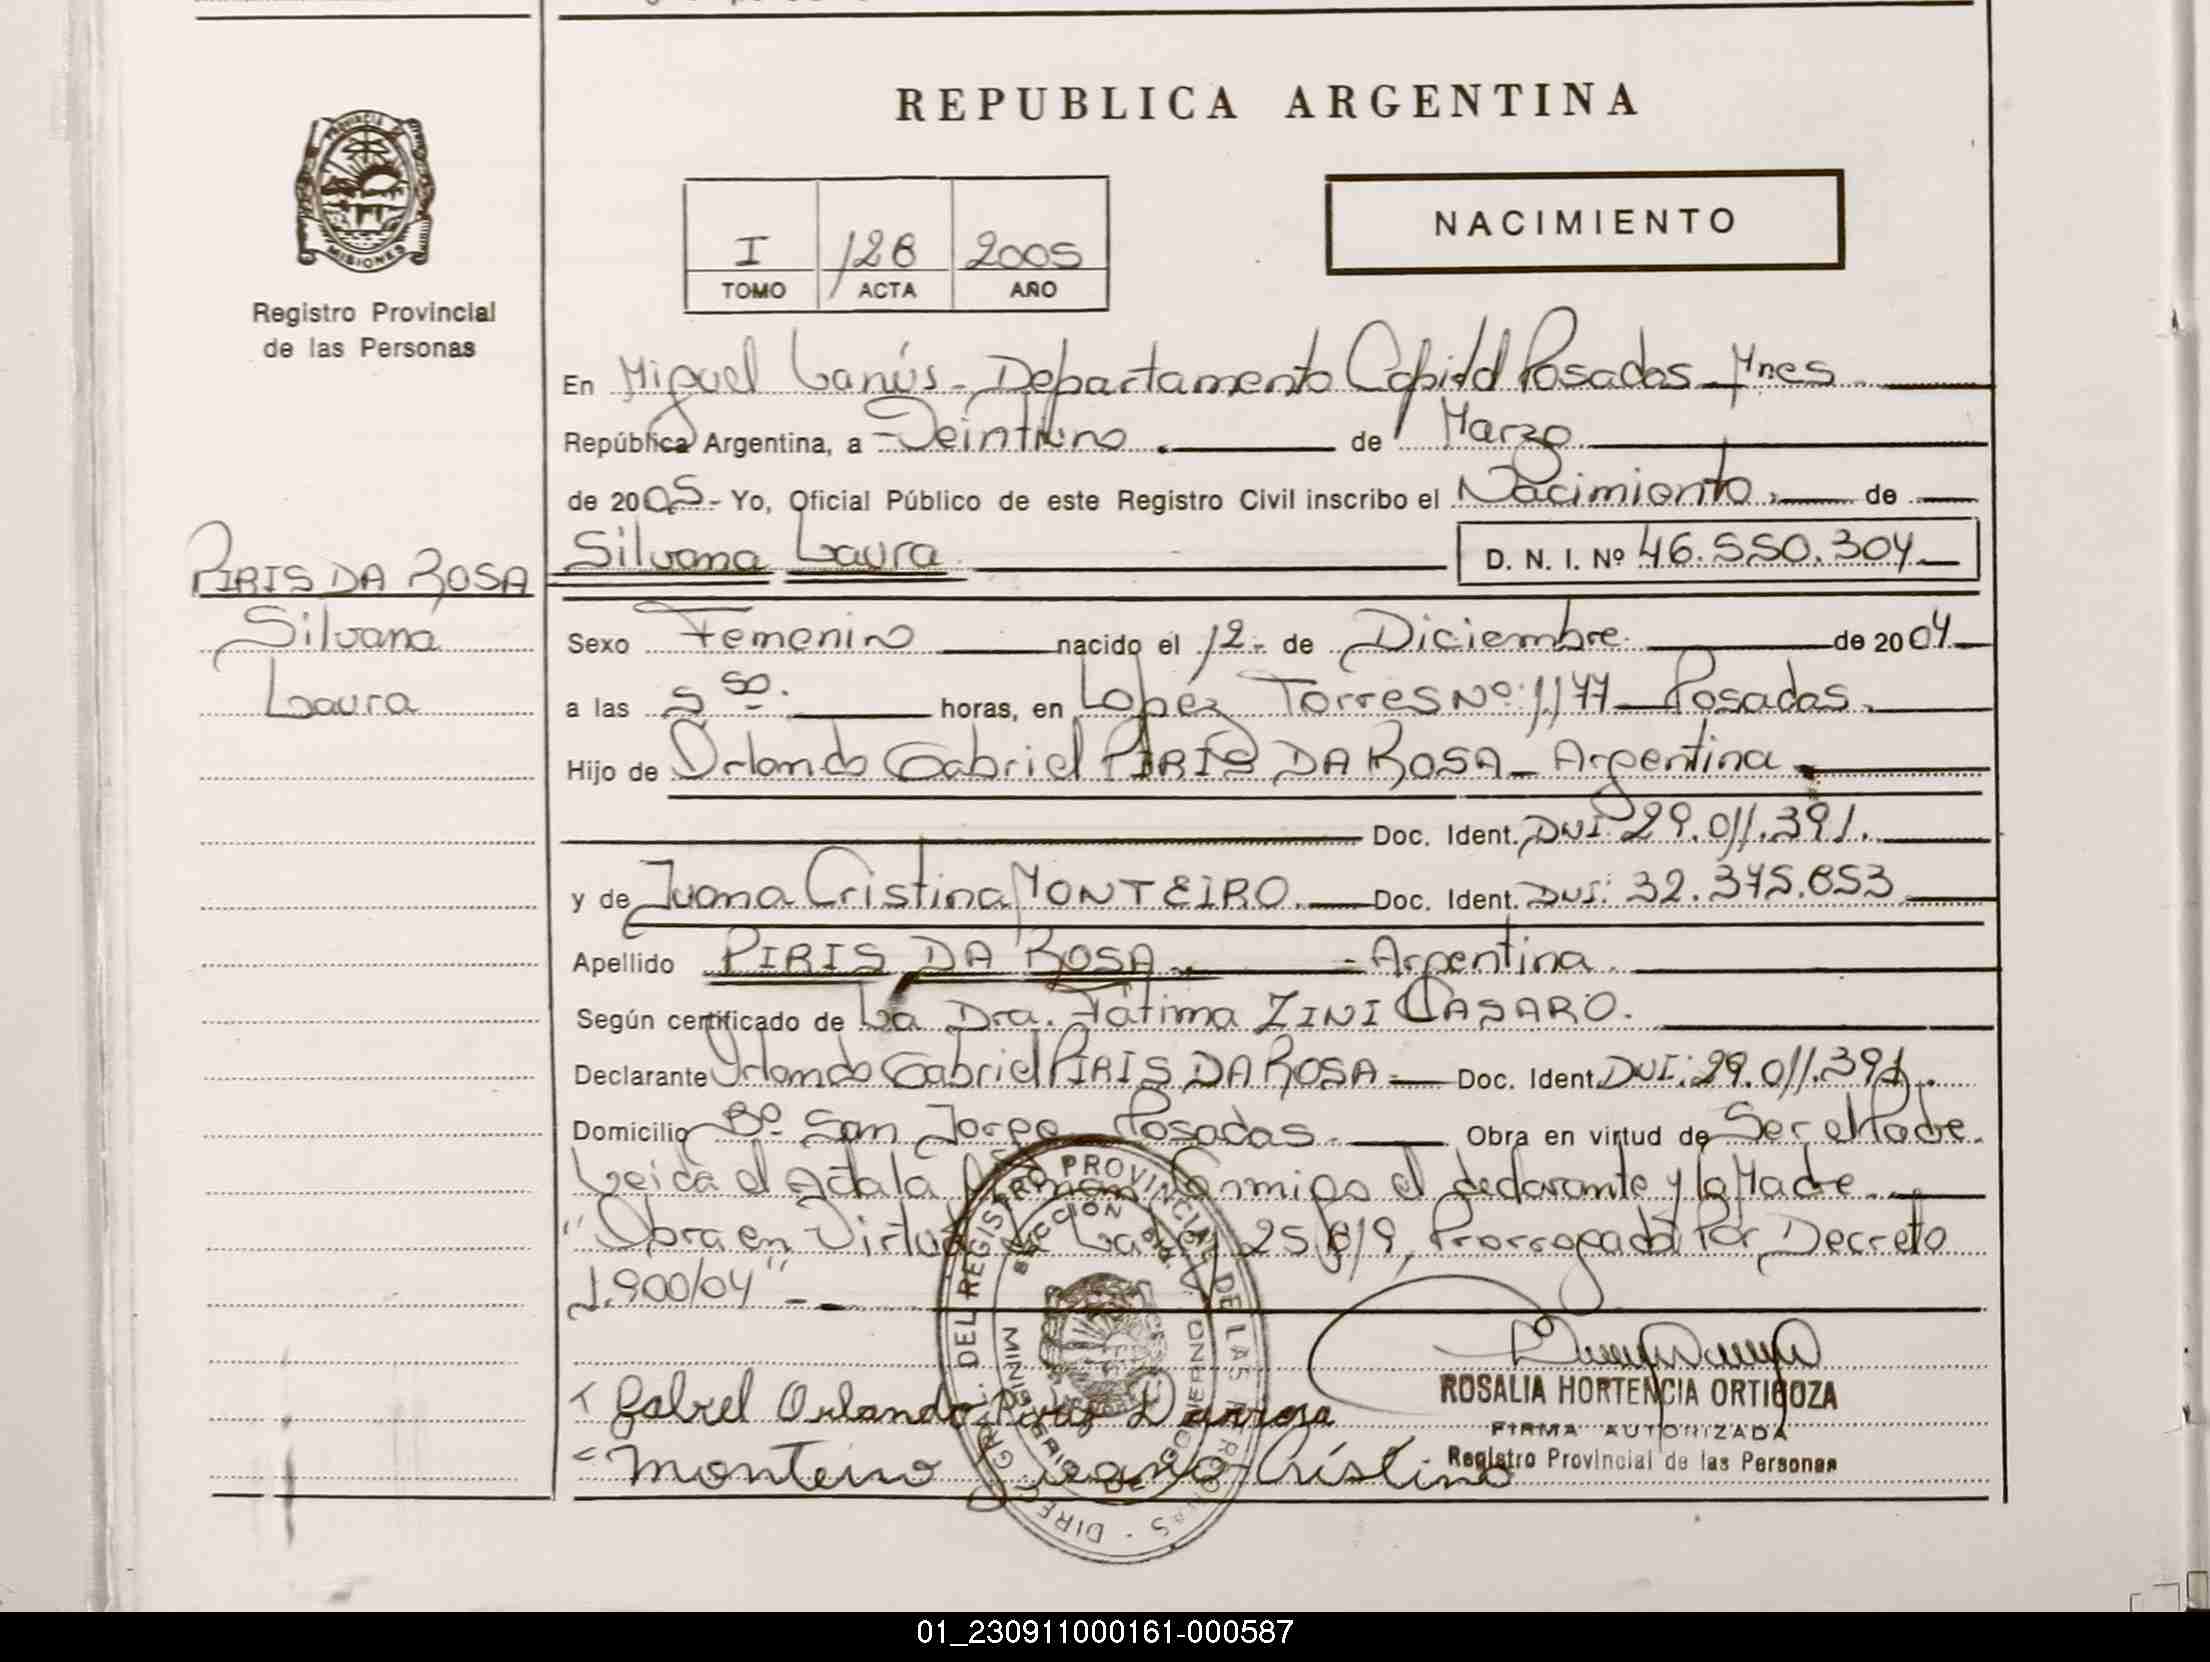 REPUBLICA ARGENTINA
PROVINCIA DE
MISIONES
Registro Provincial
de las Personas
NACIMIENTO
I 128 2005
TOMO ACTA AÑO
En Miguel Lanús - Departamento Capital Posadas - Mnes.
República Argentina, a - Veintiuno. de Marzo
de 2005 - Yo, Oficial Público de este Registro Civil inscribo el Nacimiento. de
PIRIS DA ROSA
Silvana
Laura
Silvana Laura D. N. I. Nº 46.550.304
Sexo Femenino nacido el 12 - de Diciembre. de 2004
a las 5 50. horas, en Lopéz Torres Nº: 1.177 - Posadas.
Hijo de Orlando Gabriel PIRIS DA ROSA - Argentina
Doc. Ident. DNI: 29.011.391.
y de Juana Cristina MONTEIRO. Doc. Ident. DNI: 32.375.853
Apellido PIRIS DA ROSA - Argentina
Según certificado de La Dra. Fátima ZINI CASARO.
Declarante Orlando Gabriel PIRIS DA ROSA Doc. Ident. DNI: 29.011.391.
Domicilio Bº San Jorge Posadas. Obra en virtud de Ser el Padre.
Leida el Acta la Firman Conmigo el declarante y la Madre.
"Obra en Virtud de La Ley 25.819, Prorrogada Por Decreto
1.900/04" -
ROSALIA HORTENCIA ORTIGOZA
FIRMA AUTORIZADA
Registro Provincial de las Personas
Gabrel Orlando
Monteiro Juana Cristina
DIREC. GRAL. DEL REGISTRO PROVINCIAL DE LAS PERSONAS
MINISTERIO DE GOBIERNO
01_230911000161-000587